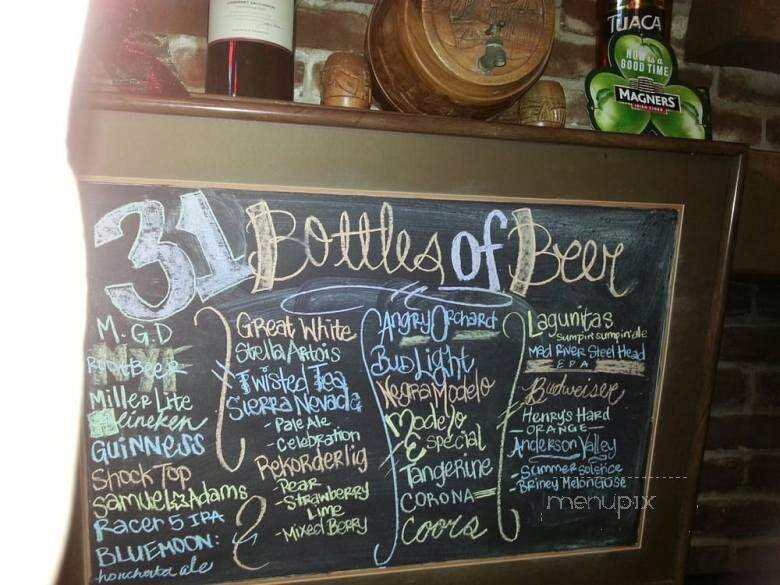 CABERNET SAUVIGNON
TUACA
NOW is a
GOOD TIME
MAGNERS
IRISH CIDER
31 Bottles of Beer
M.G.D
Root Beer
Miller Lite
Heineken
GUINNESS
Shock Top
Samuel Adams
Racer 5 IPA
BLUEMOON:
horchata ale
Great White
Stella Artois
Twisted Tea
Sierra Nevada
- Pale Ale
- Celebration
Rekorderlig
- Pear
- Strawberry
Lime
- Mixed Berry
Angry Orchard
Bud Light
Negra Modelo
Modelo
Especial
Tangerine
CORONA
Coors
Lagunitas
- Sumpin Sumpin ale
Mad River Steel Head
EPA
Budweiser
Henry's Hard
- ORANGE -
Anderson Valley
- Summer Solstice
- Briney Melon Guse
menupix